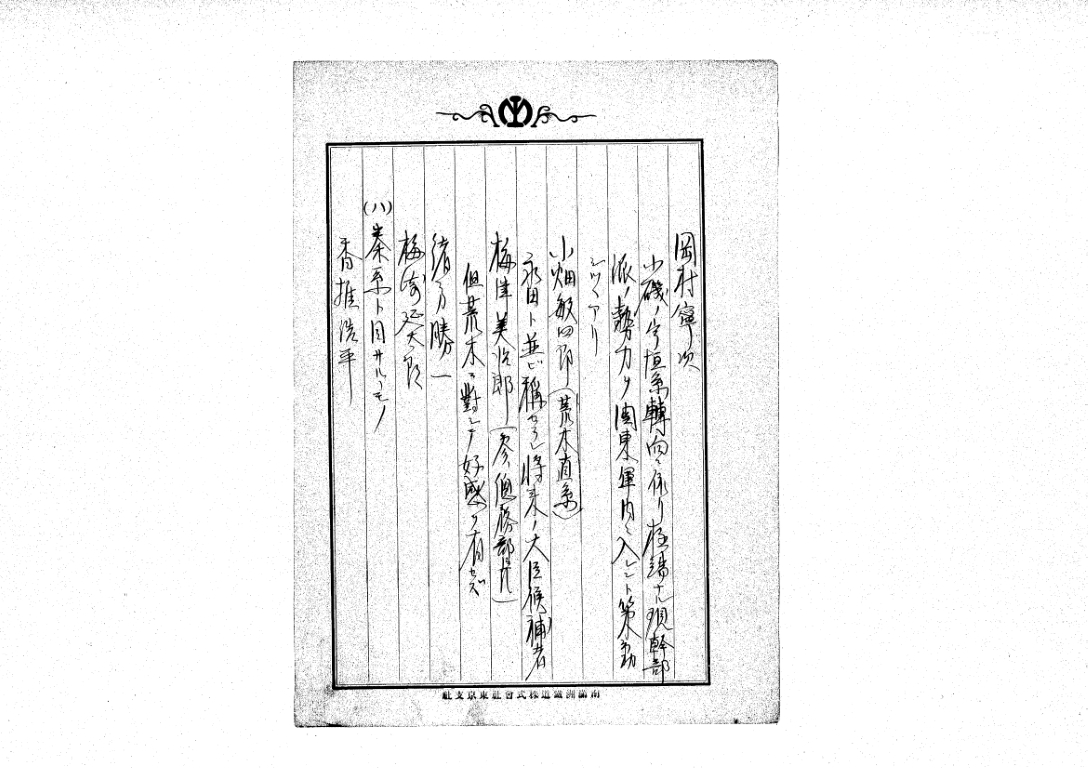 岡村寧次
小磯ノ宇垣系轉向ニ依リ極端ナル現幹部
派ノ勢力ヲ関東軍内ニ入レント策動
シツヽアリ
小畑敏四郎(荒木直系)
永田ト並ビ稱セラレ将来ノ大臣候補者
梅津美治郎(参、總務部長)
但荒木ニ對シテ好感ヲ有セズ
緒方勝一
梅崎延太郎
(八)秦系ト目サルヽモノ
香椎浩平
南滿洲鐵道株式會社東京支社